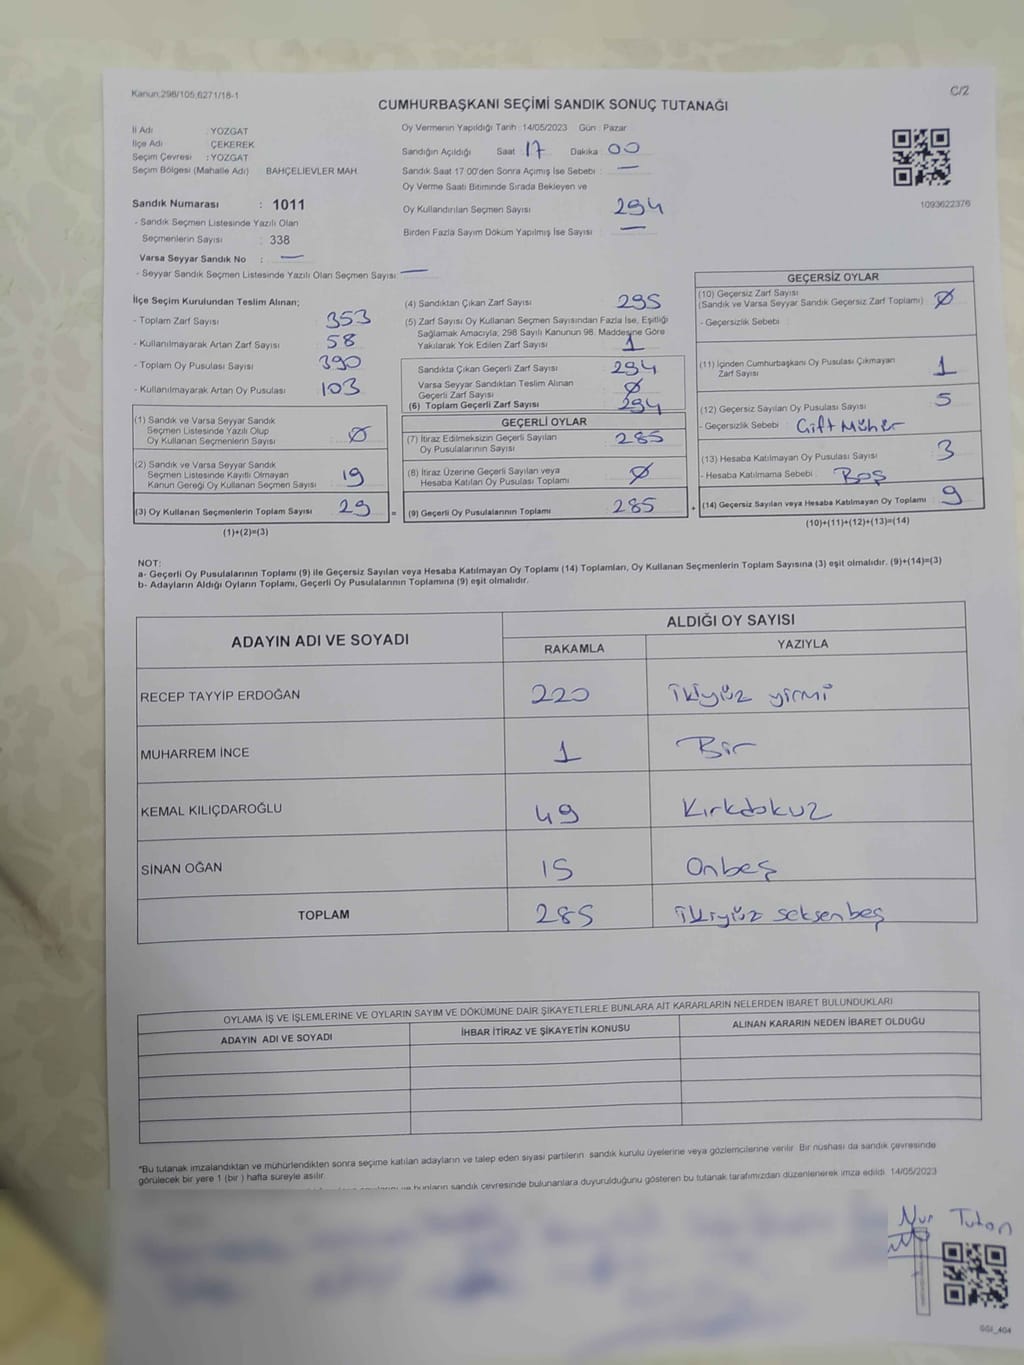 Kanun:298/105,6271/18-1
C/2
CUMHURBAŞKANI SEÇİMİ SANDIK SONUÇ TUTANAĞI
İl Adı : YOZGAT
İlçe Adı ÇEKEREK
Seçim Çevresi : YOZGAT
Seçim Bölgesi (Mahalle Adı) BAHÇELİEVLER MAH.
Oy Vermenin Yapıldığı Tarih : 14/05/2023 Gün : Pazar
Sandığın Açıldığı Saat 17 Dakika 00
Sandık Saat 17:00'den Sonra Açımış İse Sebebi : —
Oy Verme Saati Bitiminde Sırada Bekleyen ve
Oy Kullandırılan Seçmen Sayısı 294
Birden Fazla Sayım Döküm Yapılmış İse Sayısı : —
1093622376
Sandık Numarası : 1011
- Sandık Seçmen Listesinde Yazılı Olan
Seçmenlerin Sayısı : 338
Varsa Seyyar Sandık No : —
- Seyyar Sandık Seçmen Listesinde Yazılı Olan Seçmen Sayısı : —
İlçe Seçim Kurulundan Teslim Alınan;
- Toplam Zarf Sayısı 353
- Kullanılmayarak Artan Zarf Sayısı 58
- Toplam Oy Pusulası Sayısı 390
- Kullanılmayarak Artan Oy Pusulası 103
(1) Sandık ve Varsa Seyyar Sandık
Seçmen Listesinde Yazılı Olup
Oy Kullanan Seçmenlerin Sayısı Ø
(2) Sandık ve Varsa Seyyar Sandık
Seçmen Listesinde Kayıtlı Olmayan
Kanun Gereği Oy Kullanan Seçmen Sayısı 19
(3) Oy Kullanan Seçmenlerin Toplam Sayısı 29 =
(1)+(2)=(3)
(4) Sandıktan Çıkan Zarf Sayısı 295
(5) Zarf Sayısı Oy Kullanan Seçmen Sayısından Fazla İse, Eşitliği
Sağlamak Amacıyla, 298 Sayılı Kanunun 98. Maddesine Göre
Yakılarak Yok Edilen Zarf Sayısı 1
Sandıkta Çıkan Geçerli Zarf Sayısı 294
Varsa Seyyar Sandıktan Teslim Alınan
Geçerli Zarf Sayısı Ø
(6) Toplam Geçerli Zarf Sayısı 294
GEÇERLİ OYLAR
(7) İtiraz Edilmeksizin Geçerli Sayılan
Oy Pusulalarının Sayısı 285
(8) İtiraz Üzerine Geçerli Sayılan veya
Hesaba Katılan Oy Pusulası Toplamı Ø
(9) Geçerli Oy Pusulalarının Toplamı 285 +
GEÇERSİZ OYLAR
(10) Geçersiz Zarf Sayısı
(Sandık ve Varsa Seyyar Sandık Geçersiz Zarf Toplamı) Ø
- Geçersizlik Sebebi :
(11) İçinden Cumhurbaşkanı Oy Pusulası Çıkmayan
Zarf Sayısı 1
(12) Geçersiz Sayılan Oy Pusulası Sayısı 5
- Geçersizlik Sebebi : Çift Mühür
(13) Hesaba Katılmayan Oy Pusulası Sayısı 3
- Hesaba Katılmama Sebebi : Boş
(14) Geçersiz Sayılan veya Hesaba Katılmayan Oy Toplamı 9
(10)+(11)+(12)+(13)=(14)
NOT:
a- Geçerli Oy Pusulalarının Toplamı (9) ile Geçersiz Sayılan veya Hesaba Katılmayan Oy Toplamı (14) Toplamları, Oy Kullanan Seçmenlerin Toplam Sayısına (3) eşit olmalıdır. (9)+(14)=(3)
b- Adayların Aldığı Oyların Toplamı, Geçerli Oy Pusulalarının Toplamına (9) eşit olmalıdır.
ADAYIN ADI VE SOYADI
ALDIĞI OY SAYISI
RAKAMLA YAZIYLA
RECEP TAYYİP ERDOĞAN 220 ikiyüz yirmi
MUHARREM İNCE 1 Bir
KEMAL KILIÇDAROĞLU 49 Kırkdokuz
SİNAN OĞAN 15 Onbeş
TOPLAM 285 ikiyüz seksenbeş
OYLAMA İŞ VE İŞLEMLERİNE VE OYLARIN SAYIM VE DÖKÜMÜNE DAİR ŞİKAYETLERLE BUNLARA AİT KARARLARIN NELERDEN İBARET BULUNDUKLARI
ADAYIN ADI VE SOYADI İHBAR İTİRAZ VE ŞİKAYETİN KONUSU ALINAN KARARIN NEDEN İBARET OLDUĞU
*Bu tutanak imzalandıktan ve mühürlendikten sonra seçime katılan adayların ve talep eden siyasi partilerin sandık kurulu üyelerine veya gözlemcilerine verilir. Bir nüshası da sandık çevresinde
görülecek bir yere 1 (bir ) hafta süreyle asılır.
bunların sandık çevresinde bulunanlara duyurulduğunu gösteren bu tutanak tarafımızdan düzenlenerek imza edildi. 14/05/2023
Nur Tutan